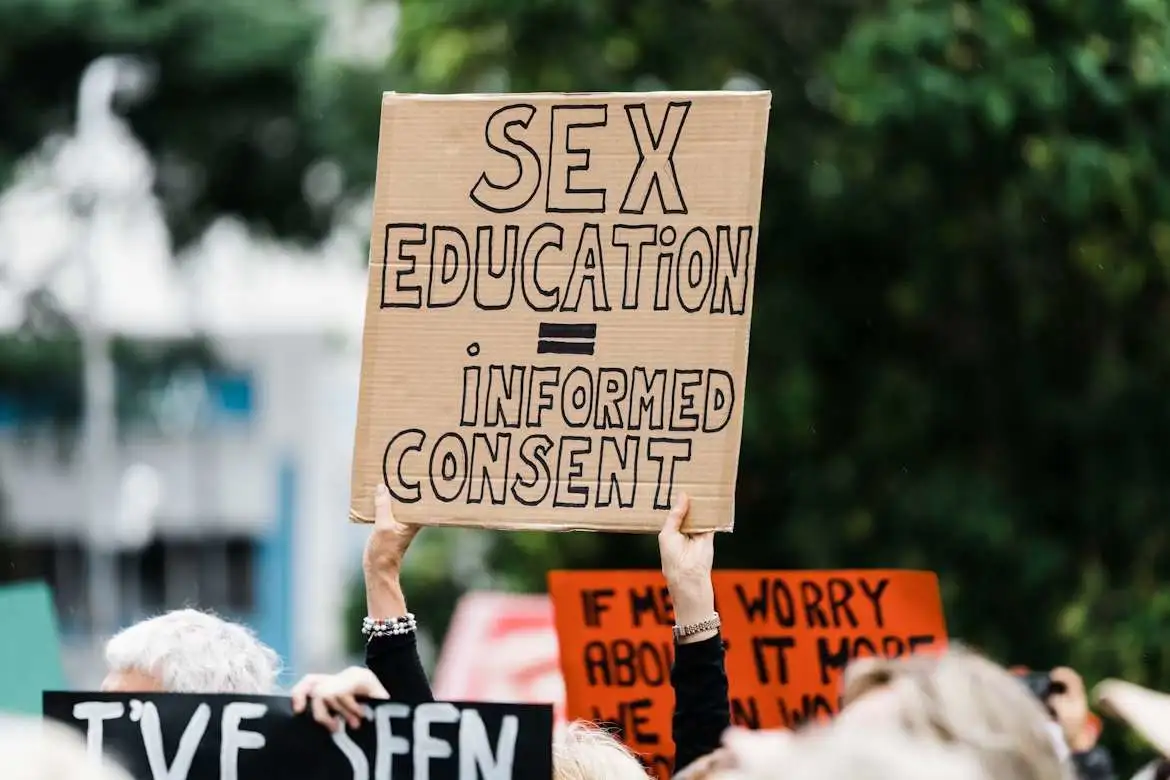 SEX
EDUCATiON
=
iNFORMED
CONSENT
IF
WORRY
IT MORE
WE
I'VE SEEN